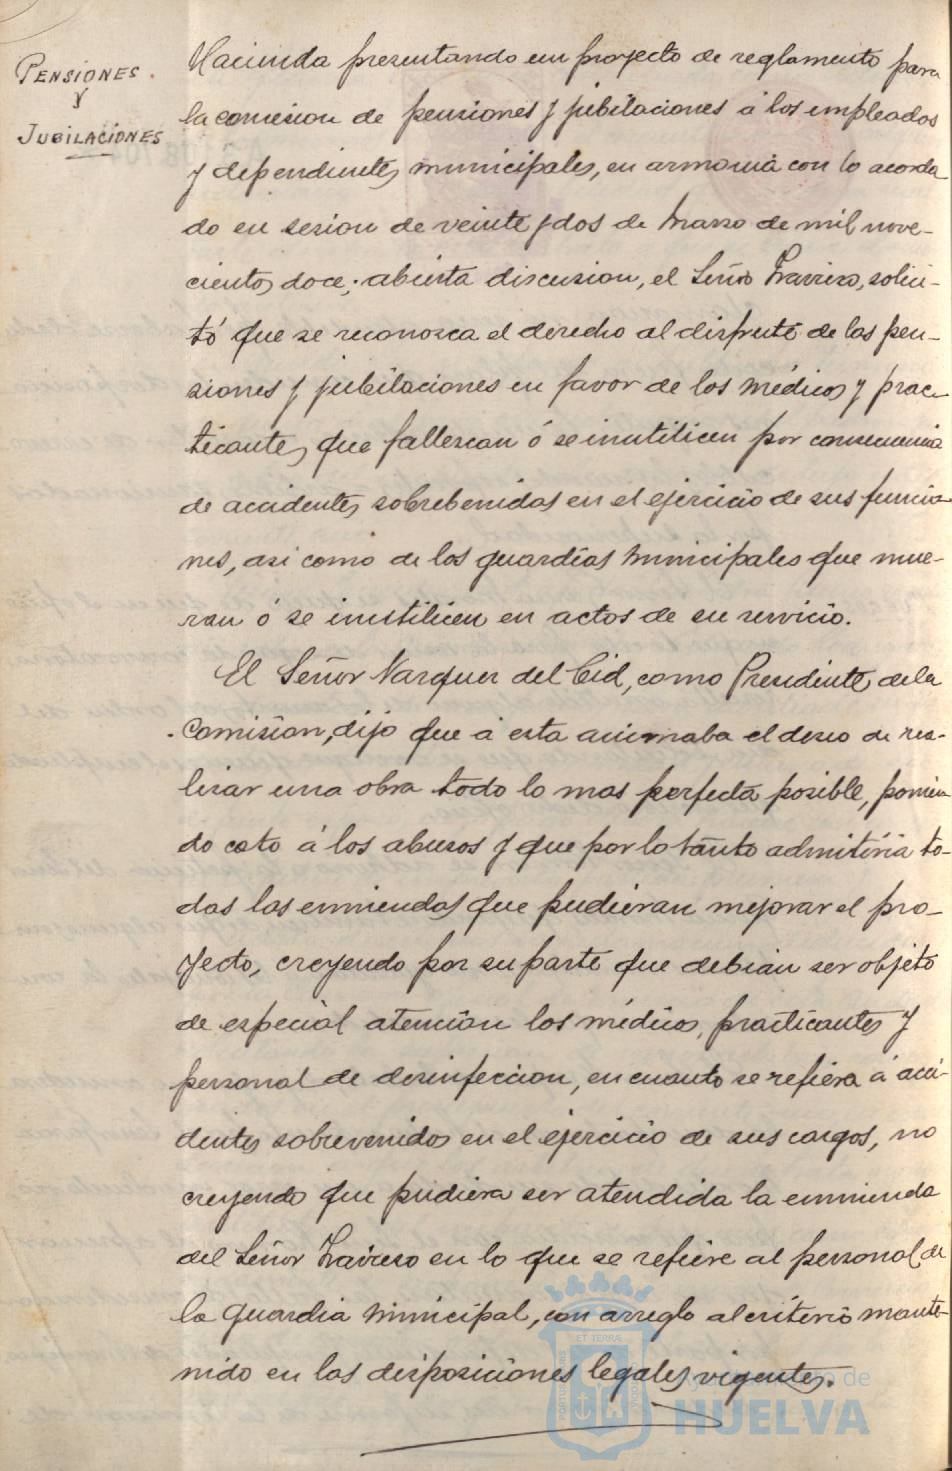 PENSIONES
Y
JUBILACIONES
Hacienda presentando un proyecto de reglamento para
la concesion de pensiones y jubilaciones á los empleados
y dependientes municipales, en armonia con lo acorda
do en sesion de veinte y dos de Marzo de mil nove-
cientos doce; abierta discusion, el Señor Travieso, solici-
tó que se reconozca el derecho al disfrute de las pen-
siones y jubilaciones en favor de los médicos y prac-
ticantes que fallezcan ó se inutilicen por consecuencia
de accidentes sobrebenidos en el ejercicio de sus funcio
nes, asi como de los guardias municipales que mue-
ran ó se inutilicen en actos de su servicio.
El Señor Vazquez del Cid, como Presidente de la
Comision, dijo que á esta animaba el deseo de rea-
lizar una obra todo lo mas perfecta posible, ponien
do coto á los abusos y que por lo tanto admitiria to-
das las enmiendas que pudieran mejorar el pro-
yecto, creyendo por su parte que debian ser objeto
de especial atencion los médicos, practicantes y
personal de desinfeccion, en cuanto se refiera á acci-
dentes sobrevenidos en el ejercicio de sus cargos, no
creyendo que pudiera ser atendida la enmienda
del Señor Travieso en lo que se refiere al personal de
la guardia Municipal, con arreglo al criterio mante-
nido en las disposiciones legales vigentes.
Ayuntamiento de
HUELVA